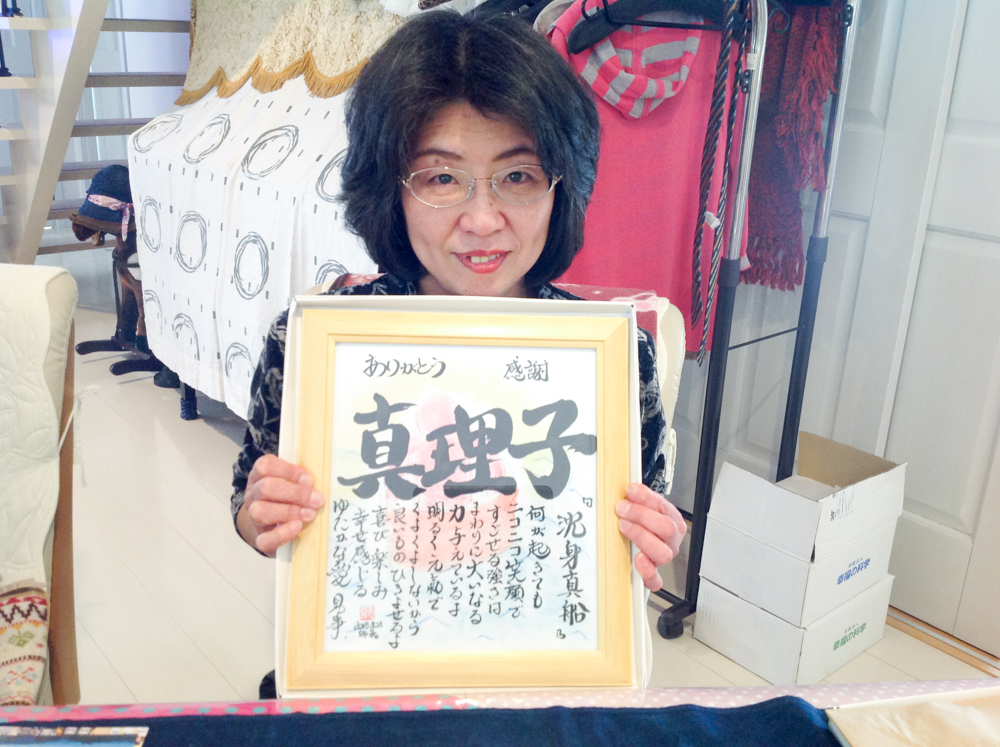 ありがとう 感謝
真理子
『沈身真船』
何が起きても
ニコニコ笑顔で
すごせる強さは
まわりに大いなる
力与えているよ
明るく元気で
くよくよしないから
良いものひきよせるよ
喜び楽しみ
幸せ感じる
ゆたかな愛 見事
幸福の科学
幸福の科学